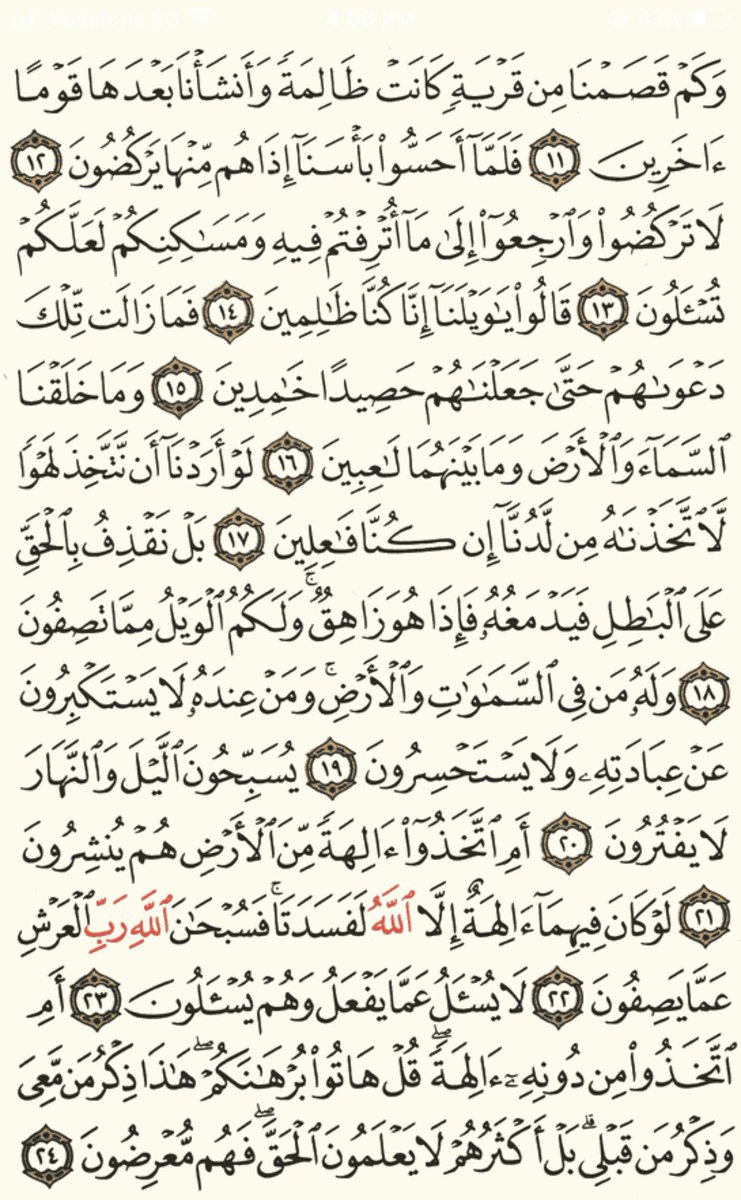 Vodafone EG 4:06 PM 43%
وَكَمْ قَصَمْنَا مِن قَرْيَةٍ كَانَتْ ظَالِمَةً وَأَنشَأْنَا بَعْدَهَا قَوْمًا
ءَاخَرِينَ ١١ فَلَمَّآ أَحَسُّوا۟ بَأْسَنَآ إِذَا هُم مِّنْهَا يَرْكُضُونَ ١٢
لَا تَرْكُضُوا۟ وَٱرْجِعُوٓا۟ إِلَىٰ مَآ أُتْرِفْتُمْ فِيهِ وَمَسَـٰكِنِكُمْ لَعَلَّكُمْ
تُسْـَٔلُونَ ١٣ قَالُوا۟ يَـٰوَيْلَنَآ إِنَّا كُنَّا ظَـٰلِمِينَ ١٤ فَمَا زَالَت تِّلْكَ
دَعْوَىٰهُمْ حَتَّىٰ جَعَلْنَـٰهُمْ حَصِيدًا خَـٰمِدِينَ ١٥ وَمَا خَلَقْنَا
ٱلسَّمَآءَ وَٱلْأَرْضَ وَمَا بَيْنَهُمَا لَـٰعِبِينَ ١٦ لَوْ أَرَدْنَآ أَن نَّتَّخِذَ لَهْوًا
لَّٱتَّخَذْنَـٰهُ مِن لَّدُنَّآ إِن كُنَّا فَـٰعِلِينَ ١٧ بَلْ نَقْذِفُ بِٱلْحَقِّ
عَلَى ٱلْبَـٰطِلِ فَيَدْمَغُهُۥ فَإِذَا هُوَ زَاهِقٌ ۚ وَلَكُمُ ٱلْوَيْلُ مِمَّا تَصِفُونَ
١٨ وَلَهُۥ مَن فِى ٱلسَّمَـٰوَٰتِ وَٱلْأَرْضِ ۚ وَمَنْ عِندَهُۥ لَا يَسْتَكْبِرُونَ
عَنْ عِبَادَتِهِۦ وَلَا يَسْتَحْسِرُونَ ١٩ يُسَبِّحُونَ ٱلَّيْلَ وَٱلنَّهَارَ
لَا يَفْتُرُونَ ٢٠ أَمِ ٱتَّخَذُوٓا۟ ءَالِهَةً مِّنَ ٱلْأَرْضِ هُمْ يُنشِرُونَ
٢١ لَوْ كَانَ فِيهِمَآ ءَالِهَةٌ إِلَّا ٱللَّهُ لَفَسَدَتَا ۚ فَسُبْحَـٰنَ ٱللَّهِ رَبِّ ٱلْعَرْشِ
عَمَّا يَصِفُونَ ٢٢ لَا يُسْـَٔلُ عَمَّا يَفْعَلُ وَهُمْ يُسْـَٔلُونَ ٢٣ أَمِ
ٱتَّخَذُوا۟ مِن دُونِهِۦٓ ءَالِهَةً ۖ قُلْ هَاتُوا۟ بُرْهَـٰنَكُمْ ۖ هَـٰذَا ذِكْرُ مَن مَّعِىَ
وَذِكْرُ مَن قَبْلِى ۗ بَلْ أَكْثَرُهُمْ لَا يَعْلَمُونَ ٱلْحَقَّ ۖ فَهُم مُّعْرِضُونَ ٢٤